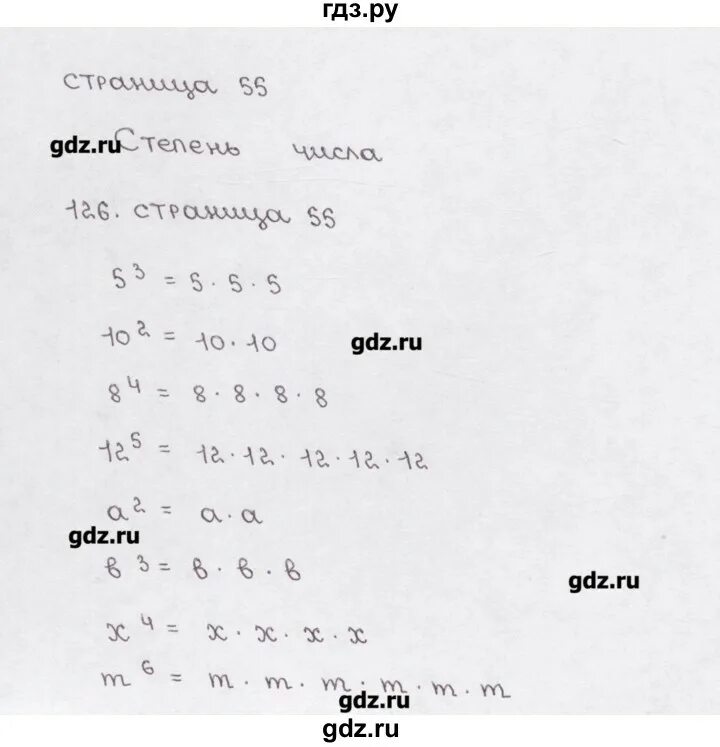 гдз.ру
страница 55
gdz.ru Степень числа
126. страница 55
5³ = 5 · 5 · 5
10² = 10 · 10
gdz.ru
8⁴ = 8 · 8 · 8 · 8
12⁵ = 12 · 12 · 12 · 12 · 12
a² = a · a
gdz.ru
в³ = в · в · в
gdz.ru
x⁴ = x · x · x · x
m⁶ = m · m · m · m · m · m
gdz.ru
gdz.ru